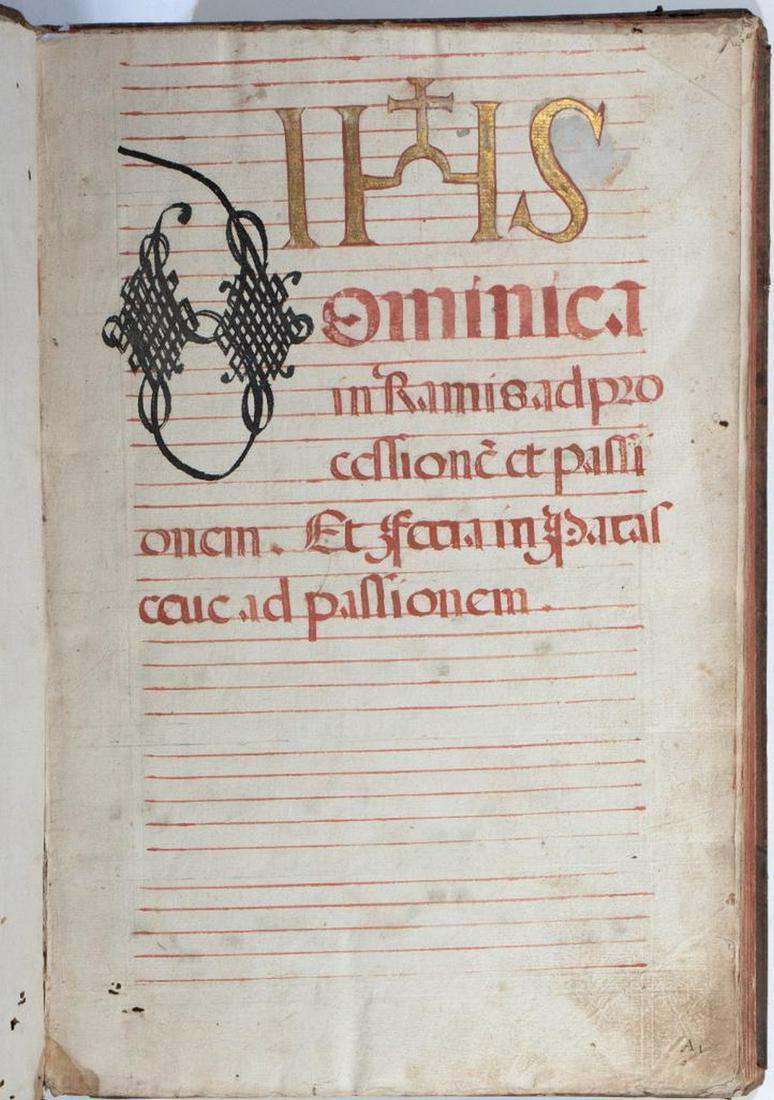 IHS
Dominica
in Ramis ad pro
cessionē et passi
onem. Et Feria in Paras
ceue ad passionem.
A1